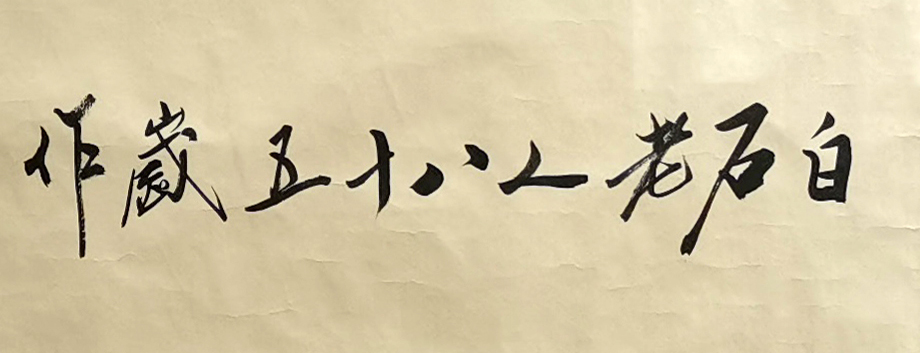 白石老人八十五歲作